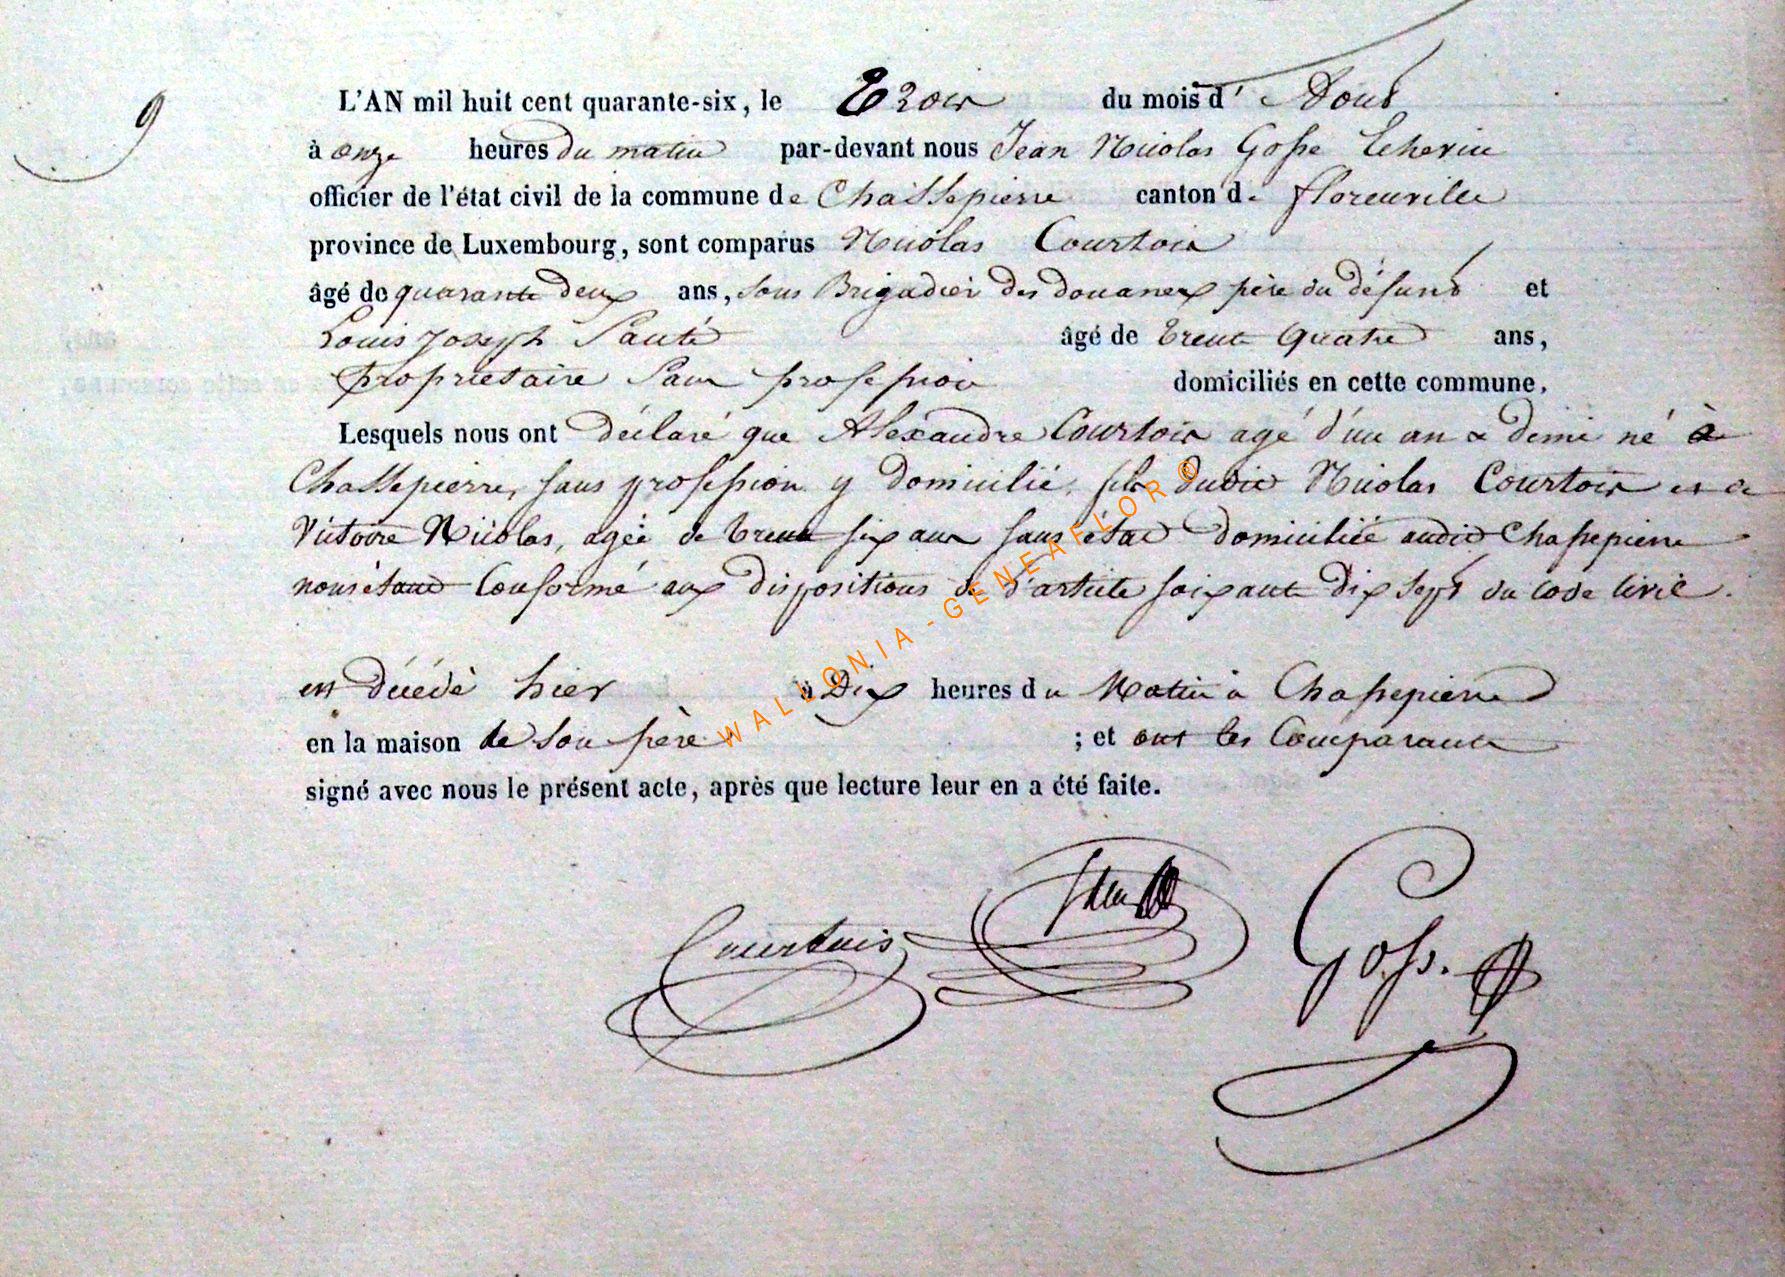 9
L'AN mil huit cent quarante-six, le Trois du mois d'Aout
à onze heures du matin par-devant nous Jean Nicolas Gosse Echevin
officier de l'état civil de la commune de Chassepierre canton de florenville
province de Luxembourg, sont comparus Nicolas Courtois
âgé de quarante deux ans, sous Brigadier des douanes père du défunt et
Louis Joseph âgé de trente Quatre ans,
proprietaire Sans profession domiciliés en cette commune,
Lesquels nous ont déclaré que Alexandre Courtois agé d'un an & demi né à
Chassepierre, sans profession y domicilié, fils dudit Nicolas Courtois et de
Victoire Nicolas, agée de trente six ans sans état domiciliée audit Chassepierre
nous étant Conformé aux dispositions de l'article soixante dix sept du code civil.
est décédé hier à Dix heures du Matin à Chassepierre
en la maison de son père ; et ont les Comparants
signé avec nous le présent acte, après que lecture leur en a été faite.
Courtois Gosse
WALLONIA - GENEAFLOR®